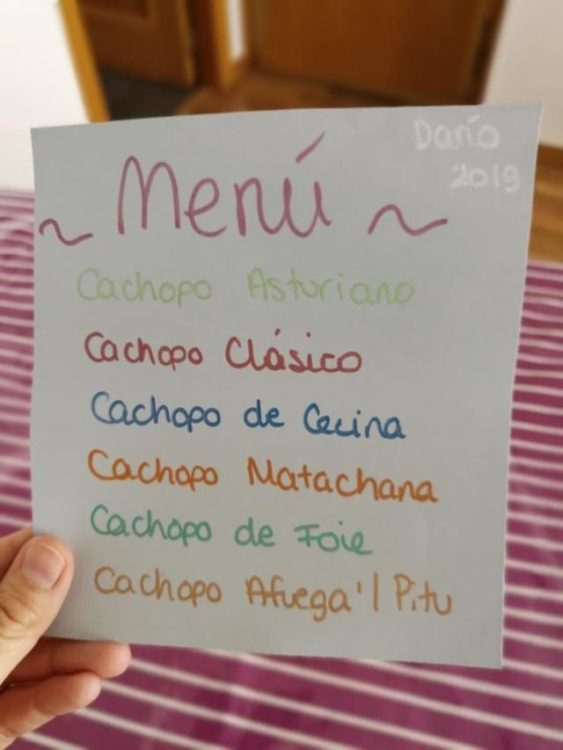 Darío
2019
~ Menú ~
Cachopo Asturiano
Cachopo Clásico
Cachopo de Cecina
Cachopo Matachana
Cachopo de Foie
Cachopo Afuega'l Pitu